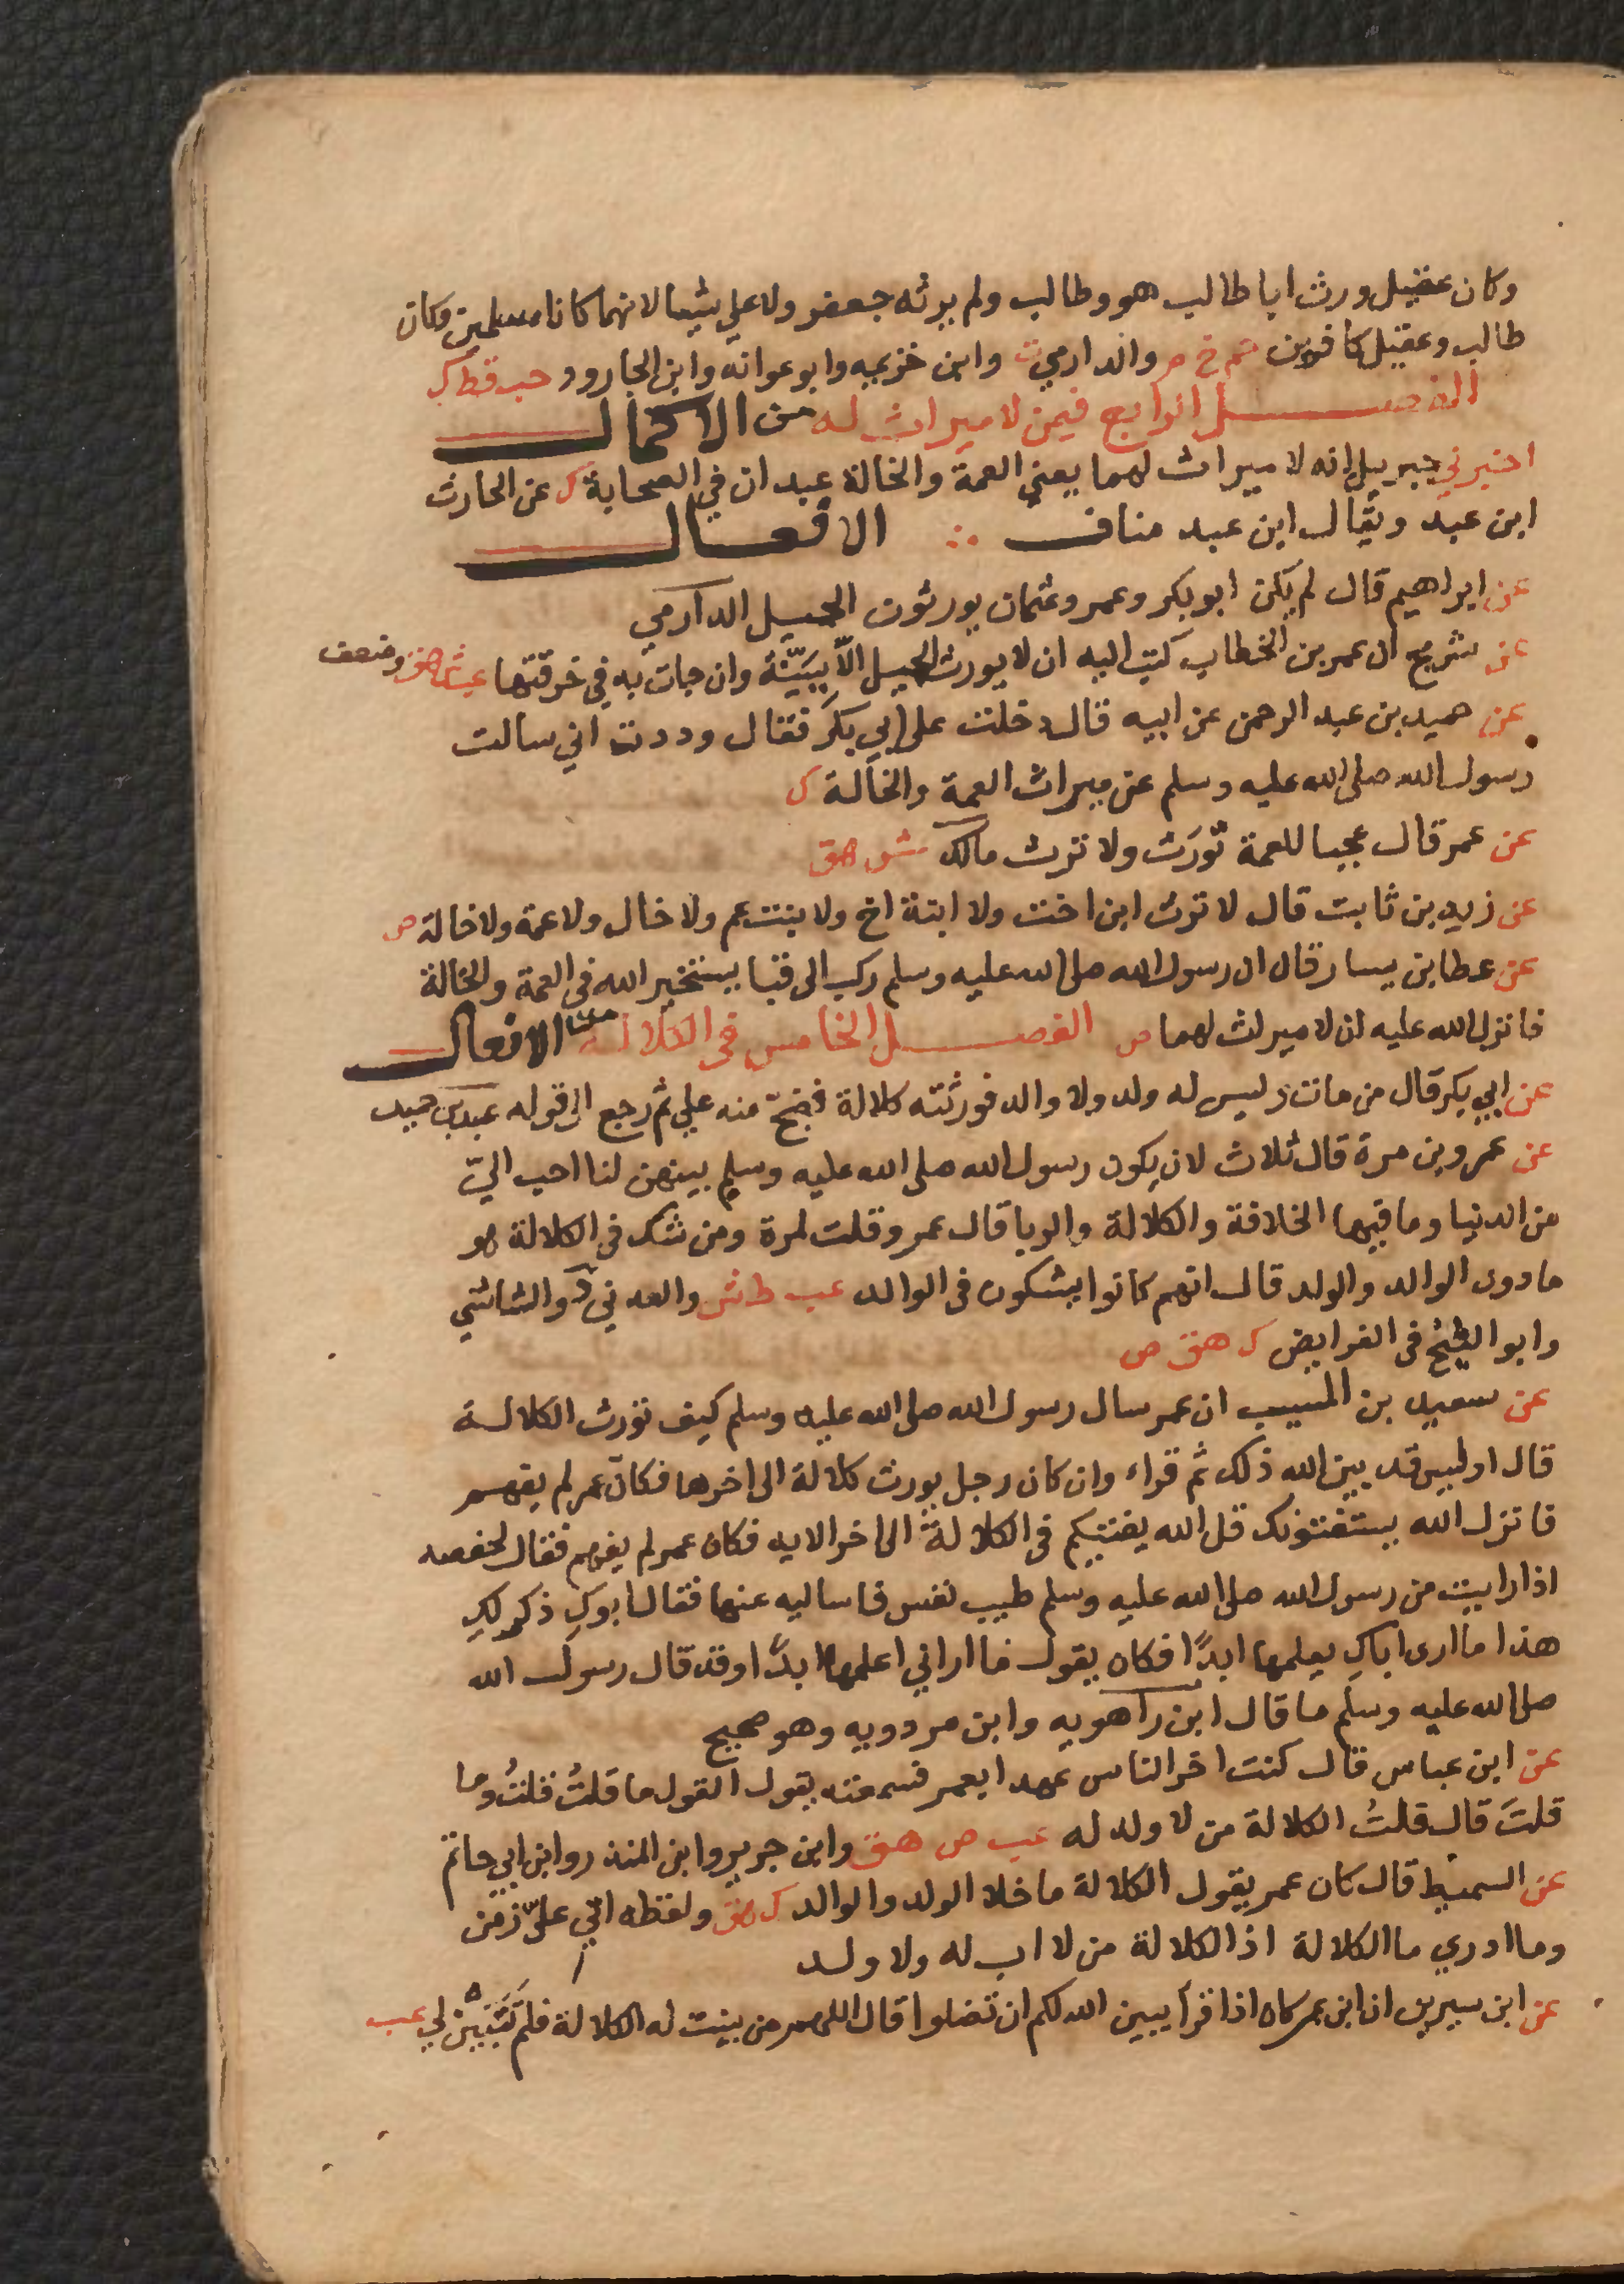 وكان عقيل ورث ابا طالب هو وطالب ولم يرثه جعفر ولا علي شيئا لانهما كانا مسلمين وكان
طالب وعقيل كافرين حم خ م والدارمي ن وابن خزيمه وابو عوانه وابن الجارود حب قط ك
الفصل الرابع فيمن لا ميراث له من الاكمال
اخبرني جبريل انه لا ميراث لهما يعني العمة والخالة عبدان في الصحابة ك عن الحارث
ابن عبد ويقال ابن عبد مناف ∴ الافعال
عن ابراهيم قال لم يكن ابو بكر وعمر وعثمان يورثون الحميل الدارمي
عن شريح ان عمر بن الخطاب كتب اليه ان لا يورث الحميل الّا ببَيّنة وان جات به في خرقتها عب ش هق وضعف
عن حميد بن عبد الرحمن عن ابيه قال دخلت على ابي بكر فقال وددت اني سالت
رسول الله صلى الله عليه وسلم عن ميراث العمة والخالة ك
عن عمر قال عجبا للعمة تُورَث ولا ترث مالك ش هق
عن زيد بن ثابت قال لا ترث ابن اخت ولا ابنة اخ ولا بنت عم ولا خال ولا عمة ولا خالة ص
عن عطا بن يسار قال ان رسول الله صلى الله عليه وسلم ركب الى قبا يستخير الله في العمة والخالة
فانزل الله عليه ان لا ميراث لهما ص الفصل الخامس في الكلالة من الافعال
عن ابي بكر قال من مات وليس له ولد ولا والد فورثته كلالة فضجّ منه علي ثم رجع الى قوله عبد بن حميد
عن عمرو بن مرة قال ثلاث لان يكون رسول الله صلى الله عليه وسلم بينهن لنا احب اليّ
من الدنيا وما فيها الخلافة والكلالة والربا قال عمرو قلت لمرة ومن شك في الكلالة هو
ما دون الوالد والولد قال انهم كانوا يشكون في الوالد عب ط ش والعدني ه والشاشي
وابو الشيخ في الفرايض ك هق ص
عن سعيد بن المسيب ان عمر سال رسول الله صلى الله عليه وسلم كيف نورث الكلالة
قال اوليس قد بين الله ذلك ثم قراء وان كان رجل يورث كلالة الى اخرها فكان عمر لم يفهم
فانزل الله يستفتونك قل الله يفتيكم في الكلالة الى اخر الايه فكان عمر لم يفهم فقال لحفصه
اذا رايت من رسول الله صلى الله عليه وسلم طيب نفس فاساليه عنها فقال ابوكِ ذكر لكِ
هذا ما ارى اباكِ يعلمها ابدًا فكان يقول ما اراني اعلمها ابدًا وقد قال رسول الله
صلى الله عليه وسلم ما قال ابن راهويه وابن مردويه وهو صحيح
عن ابن عباس قال كنت اخر الناس عهدا بعمر فسمعته يقول القول ما قلتُ قلتُ وما
قلتَ قال قلتُ الكلالة من لا ولد له عب ص هق وابن جرير وابن المنذر وابن ابي حاتم
عن السميط قال كان عمر يقول الكلالة ما خلا الولد والوالد ك هق ولفظه اتى عليّ زمن
وما ادري ما الكلالة اذ الكلالة من لا اب له ولا ولد
عن ابن سيرين ان ابن عمر كان اذا قرأ يبين الله لكم ان تضلوا قال اللهم من بينت له الكلالة فلم تَتَبَيّن لي عب